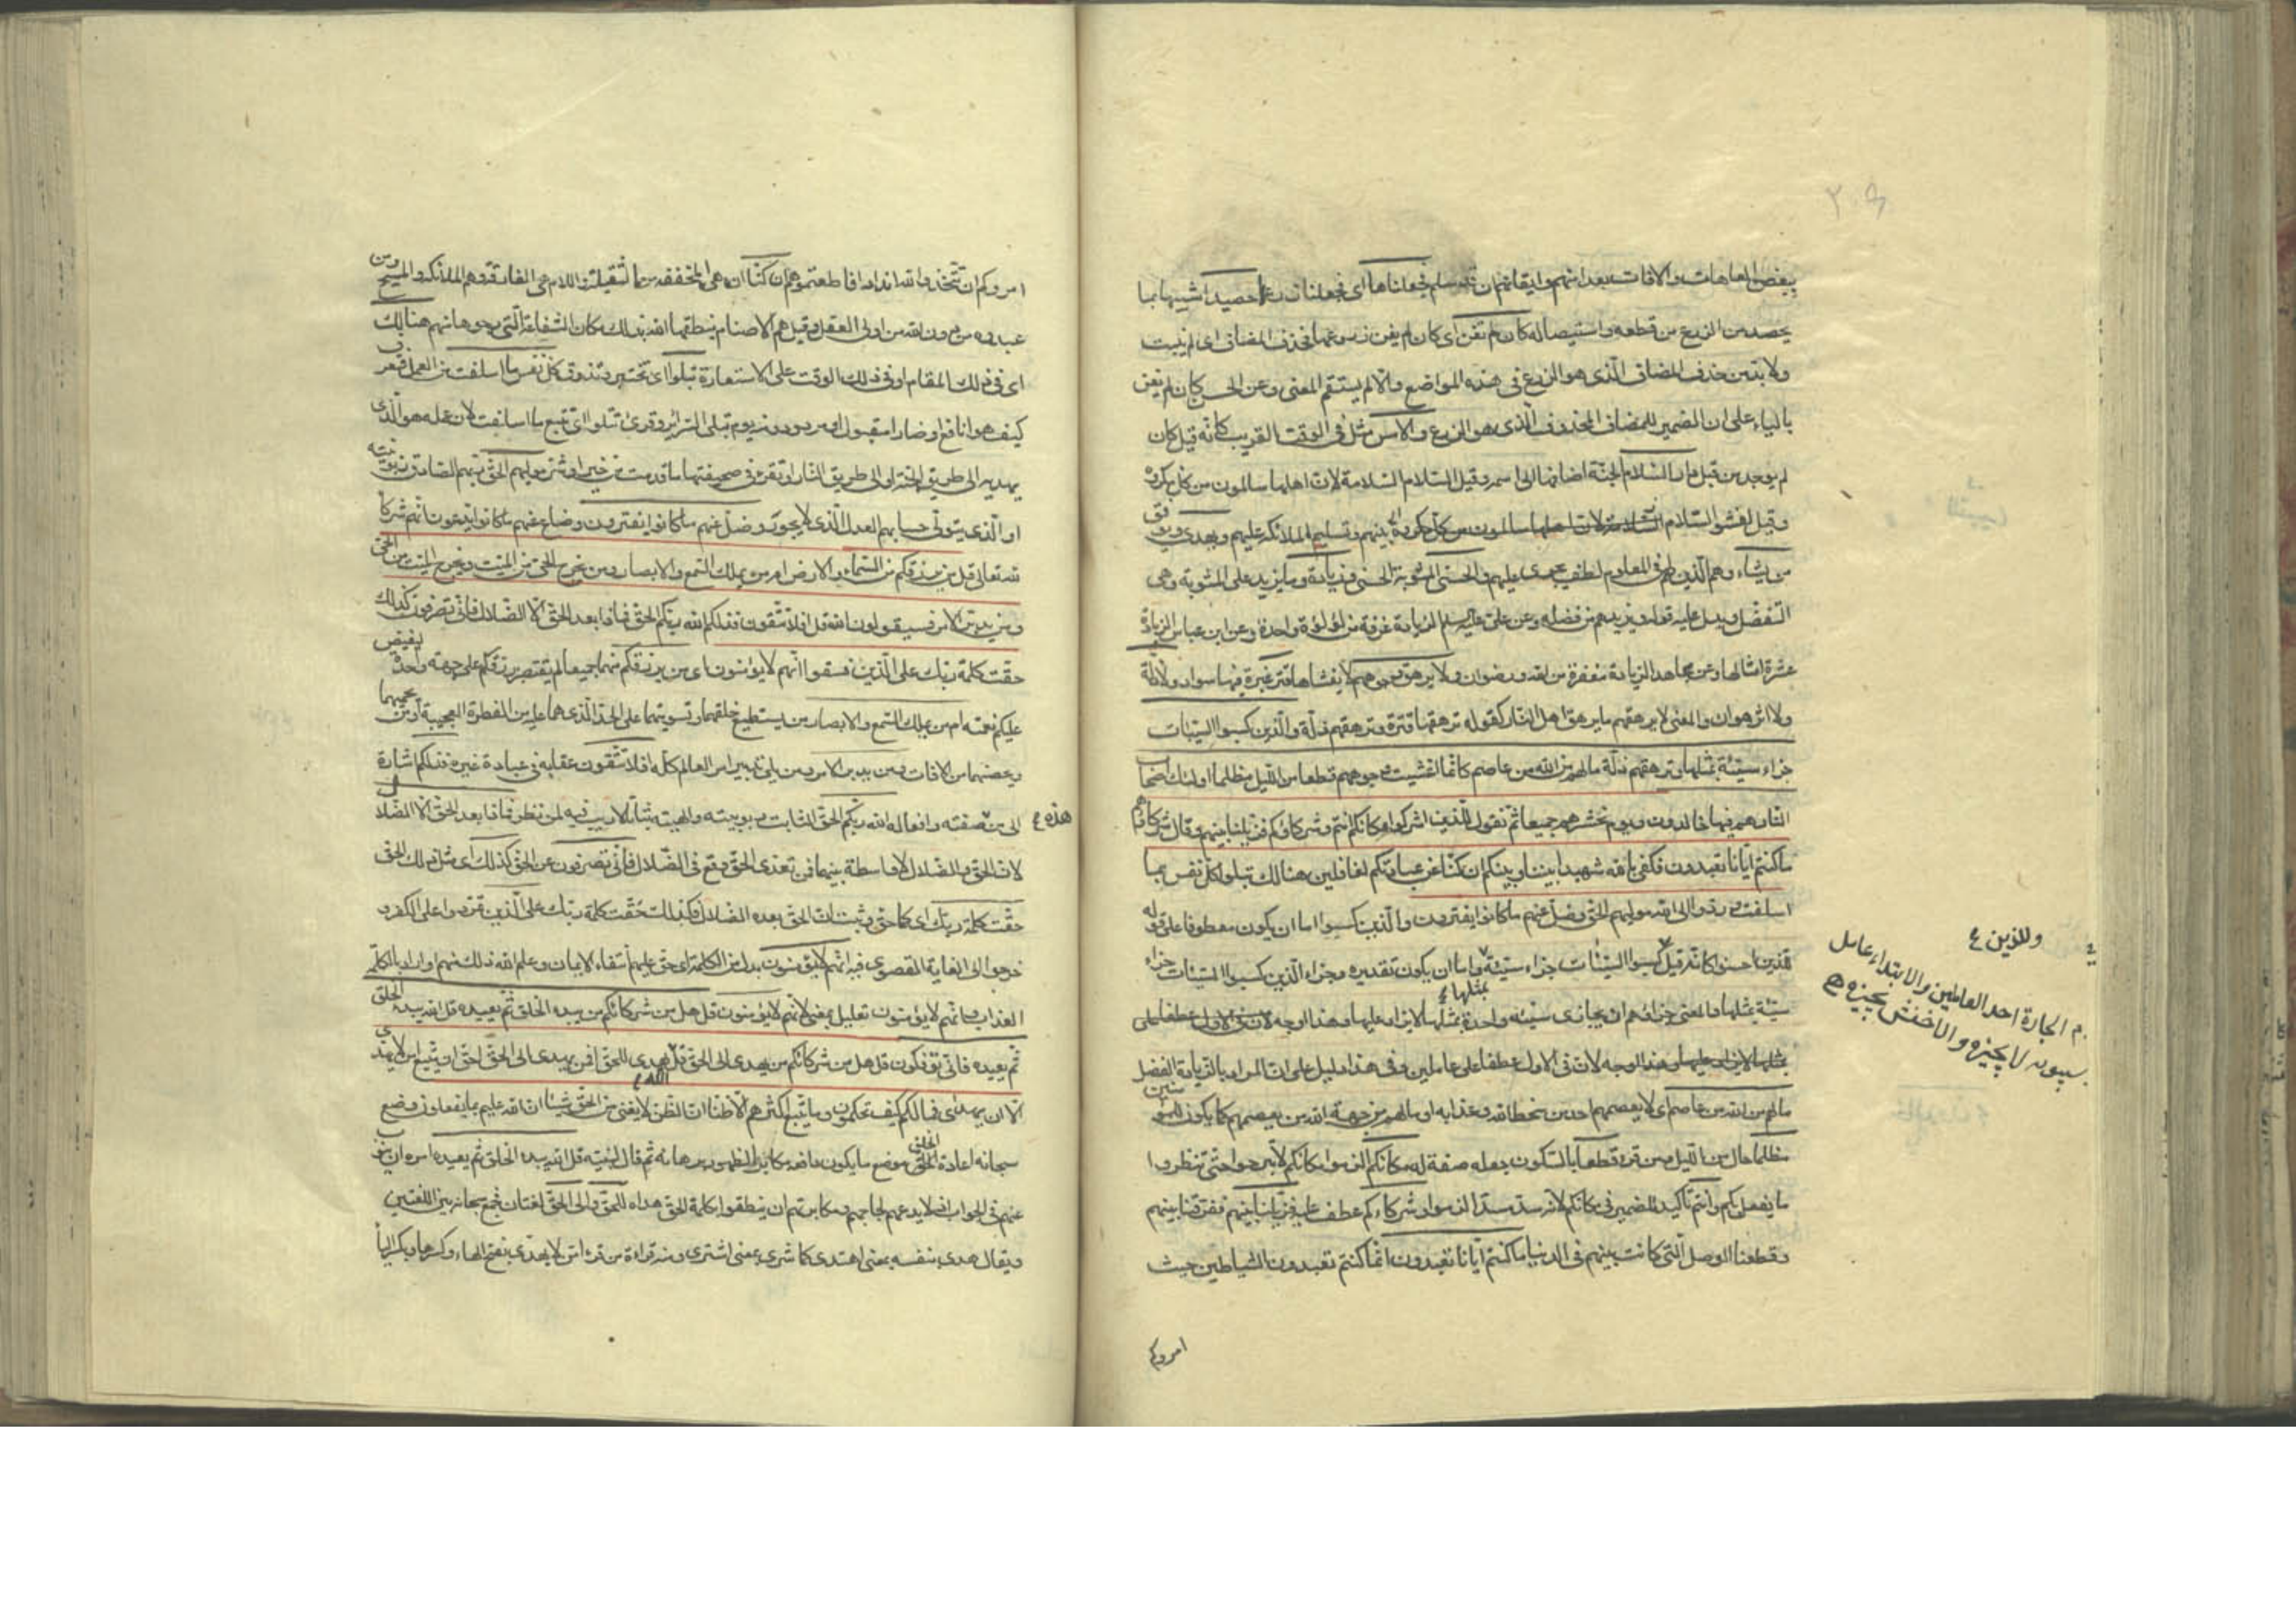 ببعض العاهات والافات بعد امنهم وايقانهم ان قد سلم فجعلناها اى فجعلنا زرعها حصيدا شبيها بما
يحصد من الزرع من قطعه واستيصاله كان لم تغن اى كان لم يغن زرعها فحذف المضاف اى لم ينبت
ولا بد من حذف المضاف الذى هو الزرع فى هذه المواضع والا لم يستقم المعنى وعن الحسن كان لم يغن
بالياء على ان الضمير للمضاف المحذوف الذى هو الزرع والامس مثل فى الوقت القريب كانه قيل كان
لم يوجد من قبل دار السلام الجنة اضافها الى اسمه وقيل السلام السلامة لان اهلها سالمون من كل مكروه
وقيل لفشو السلام بينهم وتسليم الملائكة عليهم ويهدى ويوفق
من يشاء وهم الذين فى المعلوم لطف يجدى عليهم الحسنى المثوبة الحسنى وزيادة وما يزيد على المثوبة وهى
التفضل ويدل عليه قوله ويزيدهم من فضله وعن على عليه السلم الزيادة غرفة من لؤلؤة واحدة وعن ابن عباس الزيادة
عشرة امثالها وعن مجاهد الزيادة مغفرة من الله ورضوان ولا يرهق وجوههم لا يغشاها قتر غبرة فيها سواد ولا ذلة
ولا اثر هوان والمعنى لا يرهقهم ما يرهق اهل النار كقوله ترهقها قترة وترهقهم ذلة والذين كسبوا السيئات
جزاء سيئة بمثلها وترهقهم ذلة ما لهم من الله من عاصم كانما اغشيت وجوههم قطعا من الليل مظلما اولئك اصحاب
النار هم فيها خالدون ويوم نحشرهم جميعا ثم نقول للذين اشركوا مكانكم انتم وشركاؤكم فزيلنا بينهم وقال شركاؤهم
ما كنتم ايانا تعبدون فكفى بالله شهيدا بيننا وبينكم ان كنا عن عبادتكم لغافلين هنالك تبلوا كل نفس ما
اسلفت وردوا الى الله موليهم الحق وضل عنهم ما كانوا يفترون والذين كسبوا اما ان يكون معطوفا على قوله
للذين احسنوا كانه قيل كسبوا السيئات جزاء سيئة واما ان يكون تقديره وجزاء الذين كسبوا السيئات جزاء
سيئة بمثلها والمعنى جزاؤهم ان يجازى سيئة واحدة بمثلها لا يزاد عليها وهذا اوجه لان فى الاول عطفا على
بمثلها لا يزاد عليها وهذا اوجه لان فى الاول عطفا على عاملين وفى هذا دليل على ان المراد بالزيادة الفضل
ما لهم من الله من عاصم اى لا يعصمهم احد من سخط الله وعذابه او ما لهم من جهة الله من يعصمهم كما يكون للمؤمنين
مظلما حال من الليل ومن قرء قطعا بالسكون جعله صفة له مكانكم الزموا مكانكم لا تبرحوا حتى تنظروا
ما يفعل بكم وانتم تاكيد للضمير فى مكانكم لانه سد مسد الزموا وشركاءكم عطف عليه فزيلنا بينهم ففرقنا بينهم
وقطعنا الوصل التى كانت بينهم فى الدنيا ما كنتم ايانا تعبدون انما كنتم تعبدون الشياطين حيث
امروكم
وللذين ع
الجارة احد العاملين والابتداء عامل
سيبويه لا يجيزه والاخفش يجيزه
امروكم ان تتخذوا لله اندادا فاطعتموهم ان كنا ان هى المخففة من الثقيلة واللام هى الفارقة وهم الملائكة والمسيح ومن
عبدوه من دون الله من اولى العقل وقيل هم الاصنام ينطقها الله بذلك مكان الشفاعة التى رجوها منهم هنالك
اى فى ذلك المقام او فى ذلك الوقت على الاستعارة تبلوا اى تختبر وتذوق كل نفس ما اسلفت من العمل فتعرف
كيف هو انافع او ضار امقبول او مردود ومنه يوم تبلى السرائر وقرئ تتلوا اى تتبع ما اسلفت لان عمله هو الذى
يهديه الى طريق الجنة او الى طريق النار او تقرء فى صحيفتها ما قدمت من خير او شر موليهم الحق ربهم الصادق ربوبيته
او الذى يتولى حسابهم العدل الذى لا يجور وضل عنهم ما كانوا يفترون وضاع عنهم ما كانوا يدعون انهم شركاء
لله تعالى قل من يرزقكم من السماء والارض امن يملك السمع والابصار ومن يخرج الحى من الميت ويخرج الميت من الحى
ومن يدبر الامر فسيقولون الله فقل افلا تتقون فذلكم الله ربكم الحق فماذا بعد الحق الا الضلال فانى تصرفون كذلك
حقت كلمة ربك على الذين فسقوا انهم لا يؤمنون اى من يرزقكم منهما جميعا لم يقتصر برزقكم على جهة واحدة ليفيض
عليكم نعمته ام من يملك السمع والابصار من يستطيع خلقهما وتسويتهما على الحد الذى هما عليه من الفطرة العجيبة او من يحميهما
ويعصنهما من الافات ومن يدبر الامر ومن يلى تدبير امر العالم كله افلا تتقون عقابه فى عبادة غيره فذلكم اشارة
هذه ع
الى من صفته وافعاله الله ربكم الحق الثابت ربوبيته والهيته ثباتا لا ريب فيه لمن نظر فماذا بعد الحق الا الضلال
لان الحق والضلال لا واسطة بينهما فمن تعدى الحق وقع فى الضلال فانى تصرفون عن الحق كذلك اى مثل ذلك الحق
حقت كلمة ربك اى كما حق وثبت ان الحق بعده الضلال فكذلك حقت كلمة ربك على الذين تمردوا على الكفر و
خرجوا الى الغاية القصوى فيه انهم لا يؤمنون بدل من الكلمة اى حق عليهم انتفاء الايمان وعلم الله ذلك منهم او اراد بالكلمة
العذاب وانهم لا يؤمنون تعليل بمعنى لانهم لا يؤمنون قل هل من شركائكم من يبدء الخلق ثم يعيده قل الله يبدء الخلق
ثم يعيده فانى تؤفكون قل هل من شركائكم من يهدى الى الحق قل الله يهدى للحق افمن يهدى الى الحق احق ان يتبع امن لا يهدى
الا ان يهدى فما لكم كيف تحكمون وما يتبع اكثرهم الا ظنا ان الظن لا يغنى من الحق شيئا ان الله عليم بما يفعلون وضع
سبحانه اعادة الخلق موضع ما يكون دافعه مكابرا لظهور برهانه ثم قال لنبيه قل الله يبدء الخلق ثم يعيده امره ان ينوب
عنهم فى الجواب اذ لا يدعهم لجاجهم ومكابرتهم ان ينطقوا بكلمة الحق هداه للحق والى الحق لغتان فجمع سبحانه بين اللغتين
ويقال هدى بنفسه بمعنى اهتدى كما شرى بمعنى اشترى ومنه قراءة من قرء امن لا يهدى بفتح الهاء وكسرها وبكسر الياء